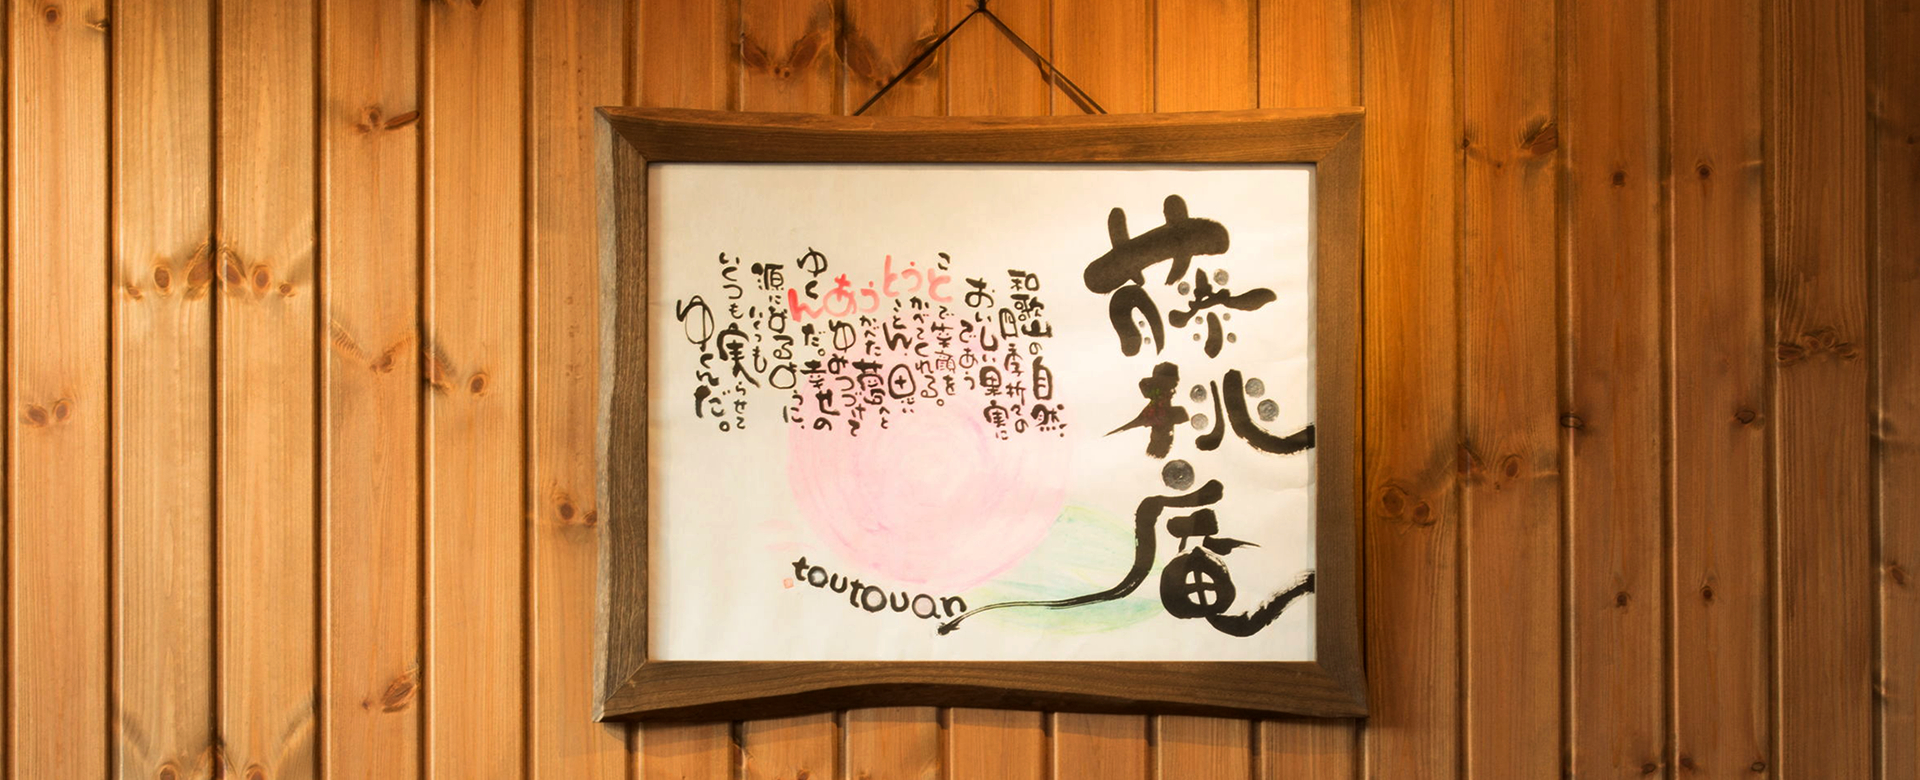 藤桃庵
和歌山の自然、
四季折々の
おいしい果実に
であう
ことで笑顔を
うかべてくれる。
とことん、思い
うかべた夢へと
あゆみつづけて
ゆくんだ。幸せの
源になるように、
いくつも
いくつも実らせて
ゆくんだ。
toutouan